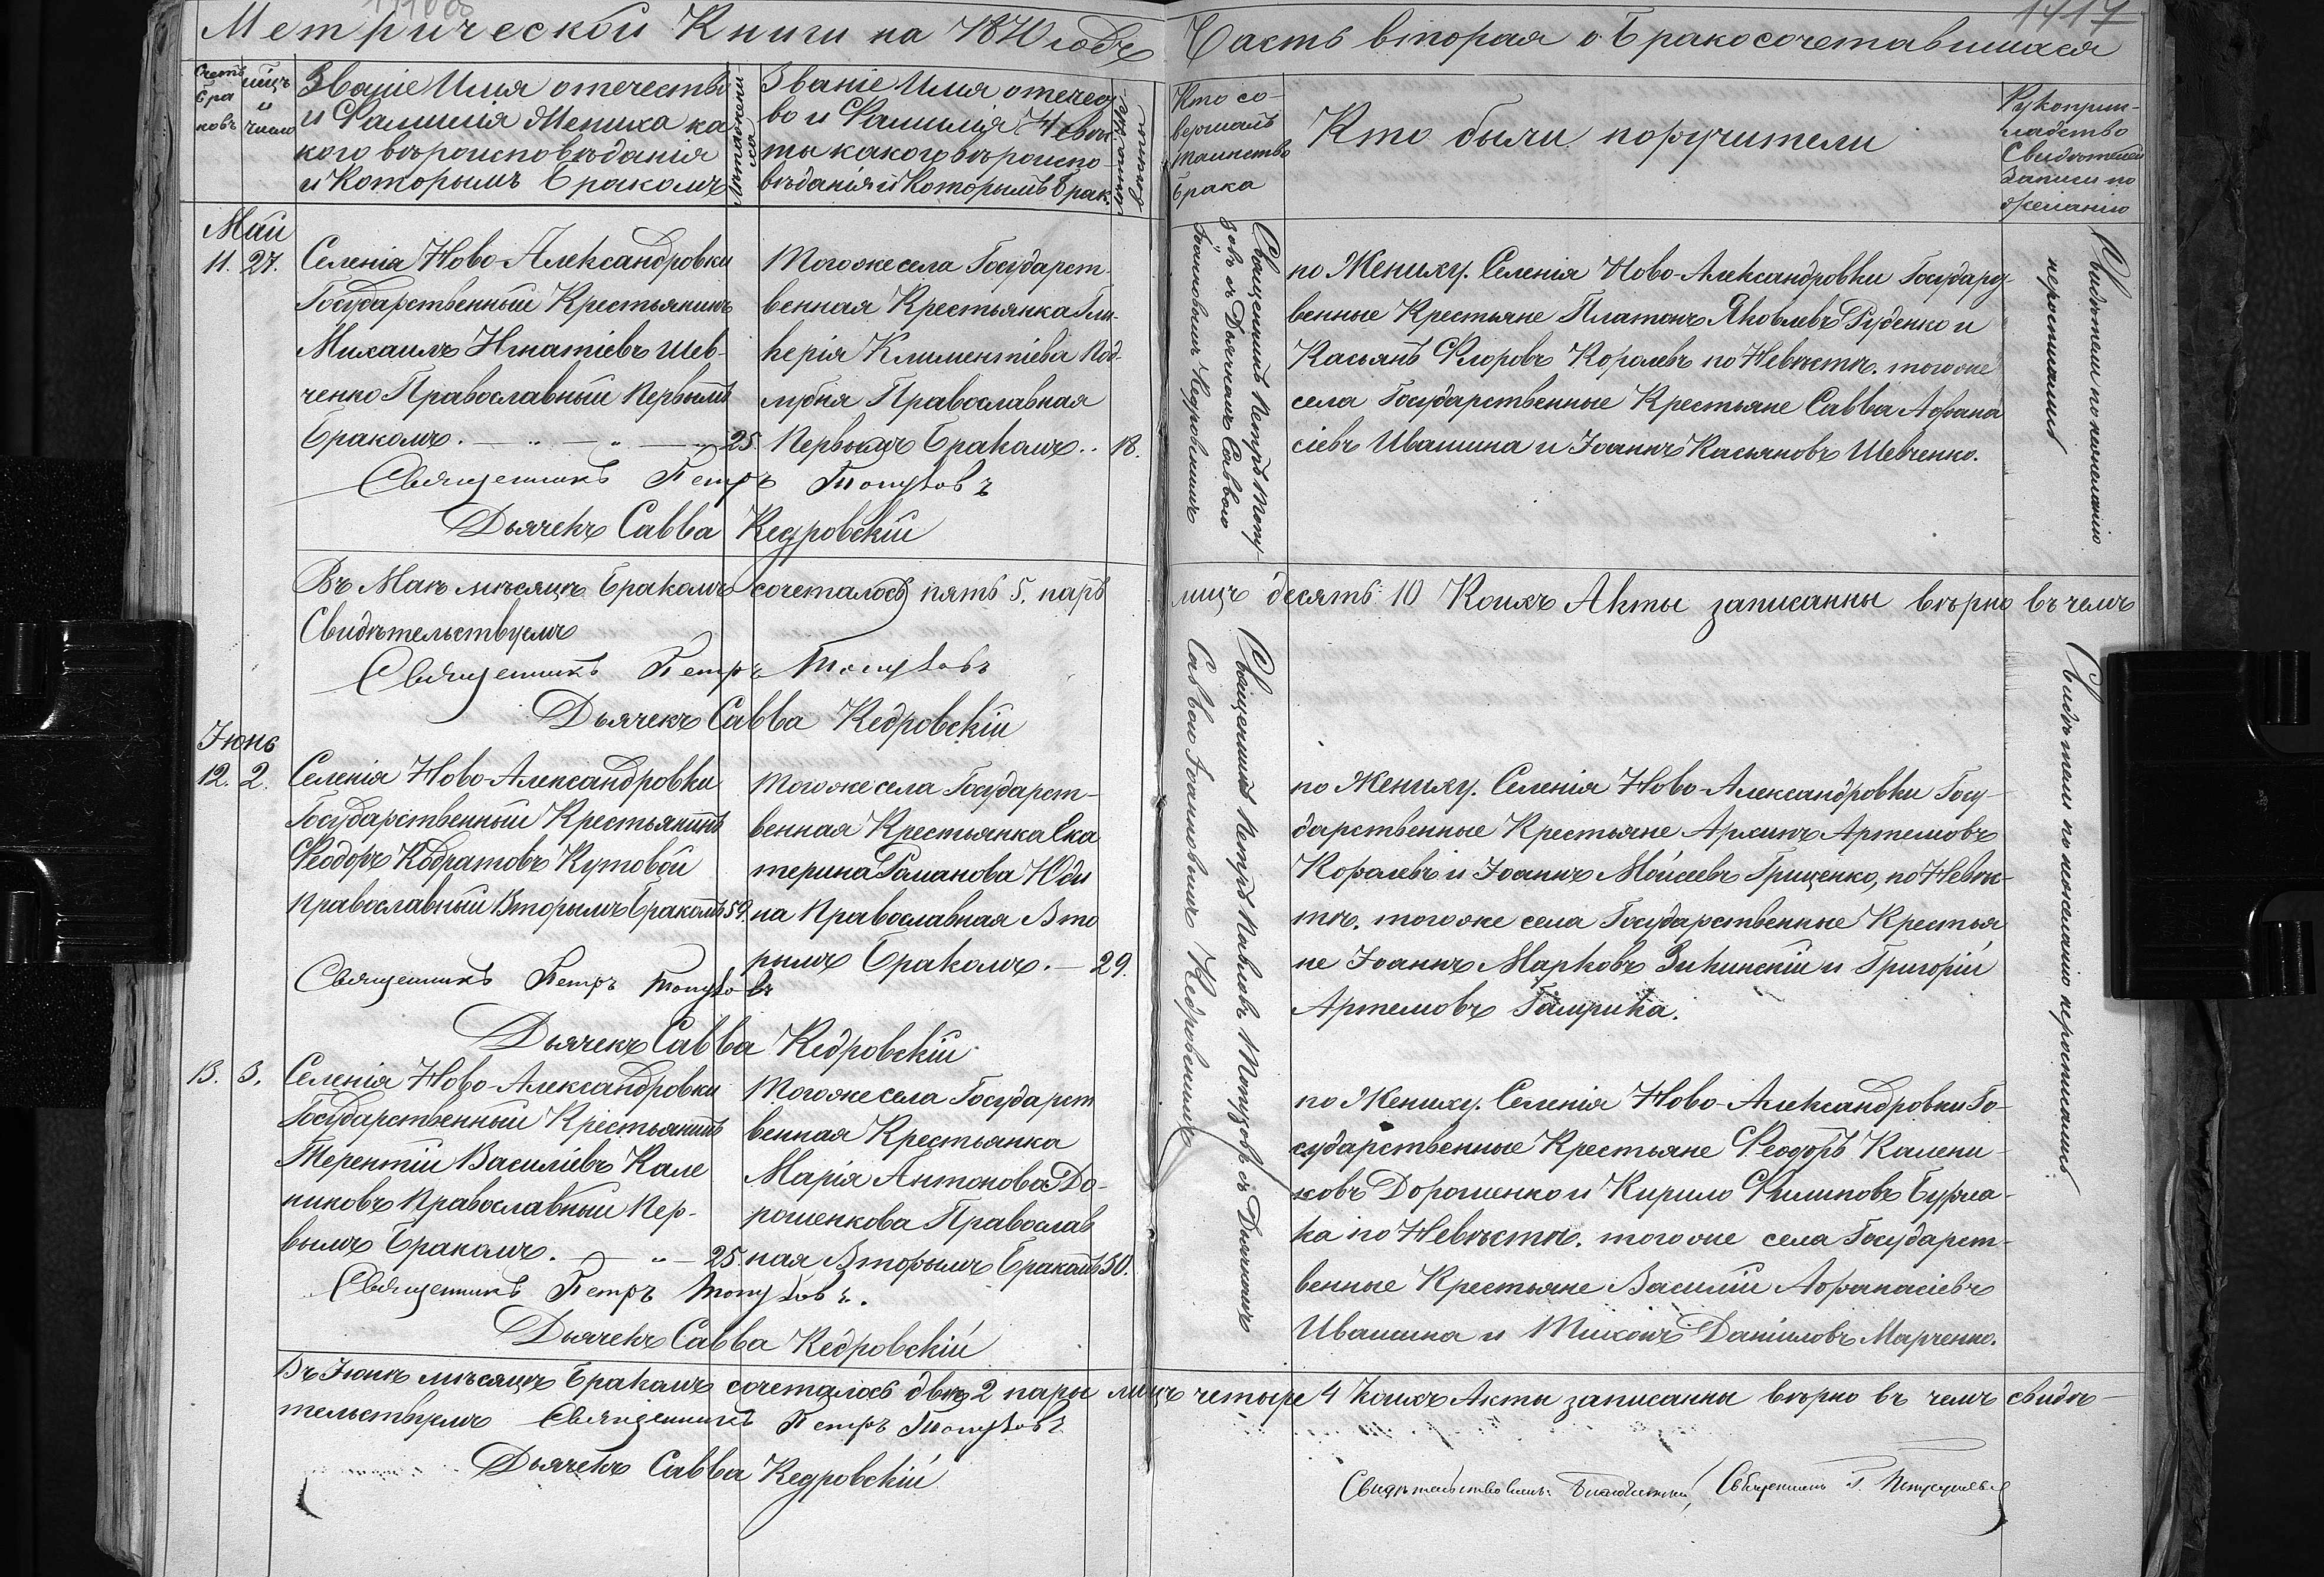 Метрической Книги на 1870 годъ
Часть вторая о Бракосочетавшихся
1417
Счетъ браковъ
мѣць и число
Званіе Имя отечество
и Фамилія Жениха ка
кого вѣроисповѣданія
и Которымъ Бракомъ
Лѣта жениха
Званіе Имя отечест
во и Фамилія Невѣс
ты какого вѣроиспо
вѣданія и Которымъ Брак.
Кто со-
вершалъ
таинство
брака
Кто были поручители
Рукоприк-
ладство
Свидѣтелей
Записи по
желанію
Май
11. 27.
Селенія Ново-Александровки
Государственный Крестьянинъ
Михаилъ Игнатіевъ Шев-
ченко Православный Первымъ
Бракомъ. 25.
Тогоже села Государст
венная Крестьянка Гли-
керія Климентіева Код-
лубня Православная
Первымъ Бракомъ.. 18.
Священникъ Петръ
Дьячекъ Савва Кедровскій
Священникъ Петръ
зовъ съ Дьячкомъ Саввою
Іоанновымъ Кедровскимъ
по Жениху. Селенія Ново-Александровки Государст
венные Крестьяне Платонъ Яковлевъ Руденко и
Касьянъ Флоровъ Королевъ по Невѣстѣ. тогоже
села Государственные Крестьяне Савва Афана
сіевъ Ивашина и Іоаннъ Касьяновъ Шевченко.
Свидѣтели по нежеланію
неросписались
Въ Маѣ мѣсяцѣ Бракомъ сочеталось пять 5. паръ лицъ десять 10 Коихъ Акты записанны вѣрно въ чемъ
Свидѣтельствуемъ
Священникъ Петръ
Дьячекъ Савва Кедровскій
Іюнь
12. 2.
Селенія Ново-Александровки
Государственный Крестьянинъ
Феодоръ Кодратовъ Кутовой
Православный Вторымъ Бракомъ 59.
Тогоже села Государст-
венная Крестьянка Ека
терина Романова Юди
на Православная Вто
рымъ Бракомъ. 29.
Священникъ Петръ
Дьячекъ Савва Кедровскій
Священникъ Петръ Павловъ съ Дьячкомъ
Саввою Іоанновымъ Кедровскимъ
по Жениху. Селенія Ново-Александровки Госу-
дарственные Крестьяне Архипъ Артемовъ
Королевъ и Іоаннъ Моисеевъ Гриценко, по Невѣс-
тѣ. тогоже села Государственные Крестья
не Іоаннъ Марковъ Зикинскій и Григорій
Артемовъ
Свидѣтели по нежеланію неросписались
13. 3.
Селенія Ново-Александровки
Государственный Крестьянинъ
Терентій Василіевъ Кале
никовъ Православный Пер-
вымъ Бракомъ. 25.
Тогоже села Государст
венная Крестьянка
Марія Антонова До-
рошенкова Православ
ная Вторымъ Бракомъ 30.
Священникъ Петръ
Дьячекъ Савва Кедровскій
по Жениху. Селенія Ново-Александровки Го-
сударственные Крестьяне Феодоръ Калени-
ковъ Дорошенко и Кирило Филиповъ Бурла-
ка по Невѣстѣ. тогоже села Государст-
венные Крестьяне Василій Афанасіевъ
Ивашина и Тихонъ Даниловъ Марченко.
Въ Іюнѣ мѣсяцѣ Бракомъ сочеталось двѣ 2 пары лицъ четыре 4 Коихъ Акты записанны вѣрно въ чемъ свидѣ-
тельствуемъ Священникъ Петръ
Дьячекъ Савва Кедровскій
Священникъ